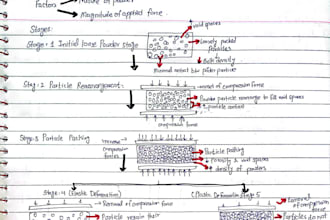 Factors
Nature of powder
Magnitude of applied force
void spaces
Stages:
Loosely packed
particles
Stage: 1 Initial loose Powder stage
↓ Bulk density
Minimal contact b/w
Stage: 2 Particle Rearrangement:
of compression force
particles rearrange to fill void spaces
↑ particle contact
compression force
Stage: 3 Particle Packing
compression
forces
↓ porosity & void spaces
↑ density of powder
Stage: 4 (Elastic Deformation)
(Plastic Deformation Stage: 5
Removal of compression force
Removal of
compression
force
Particles regain their
Particles